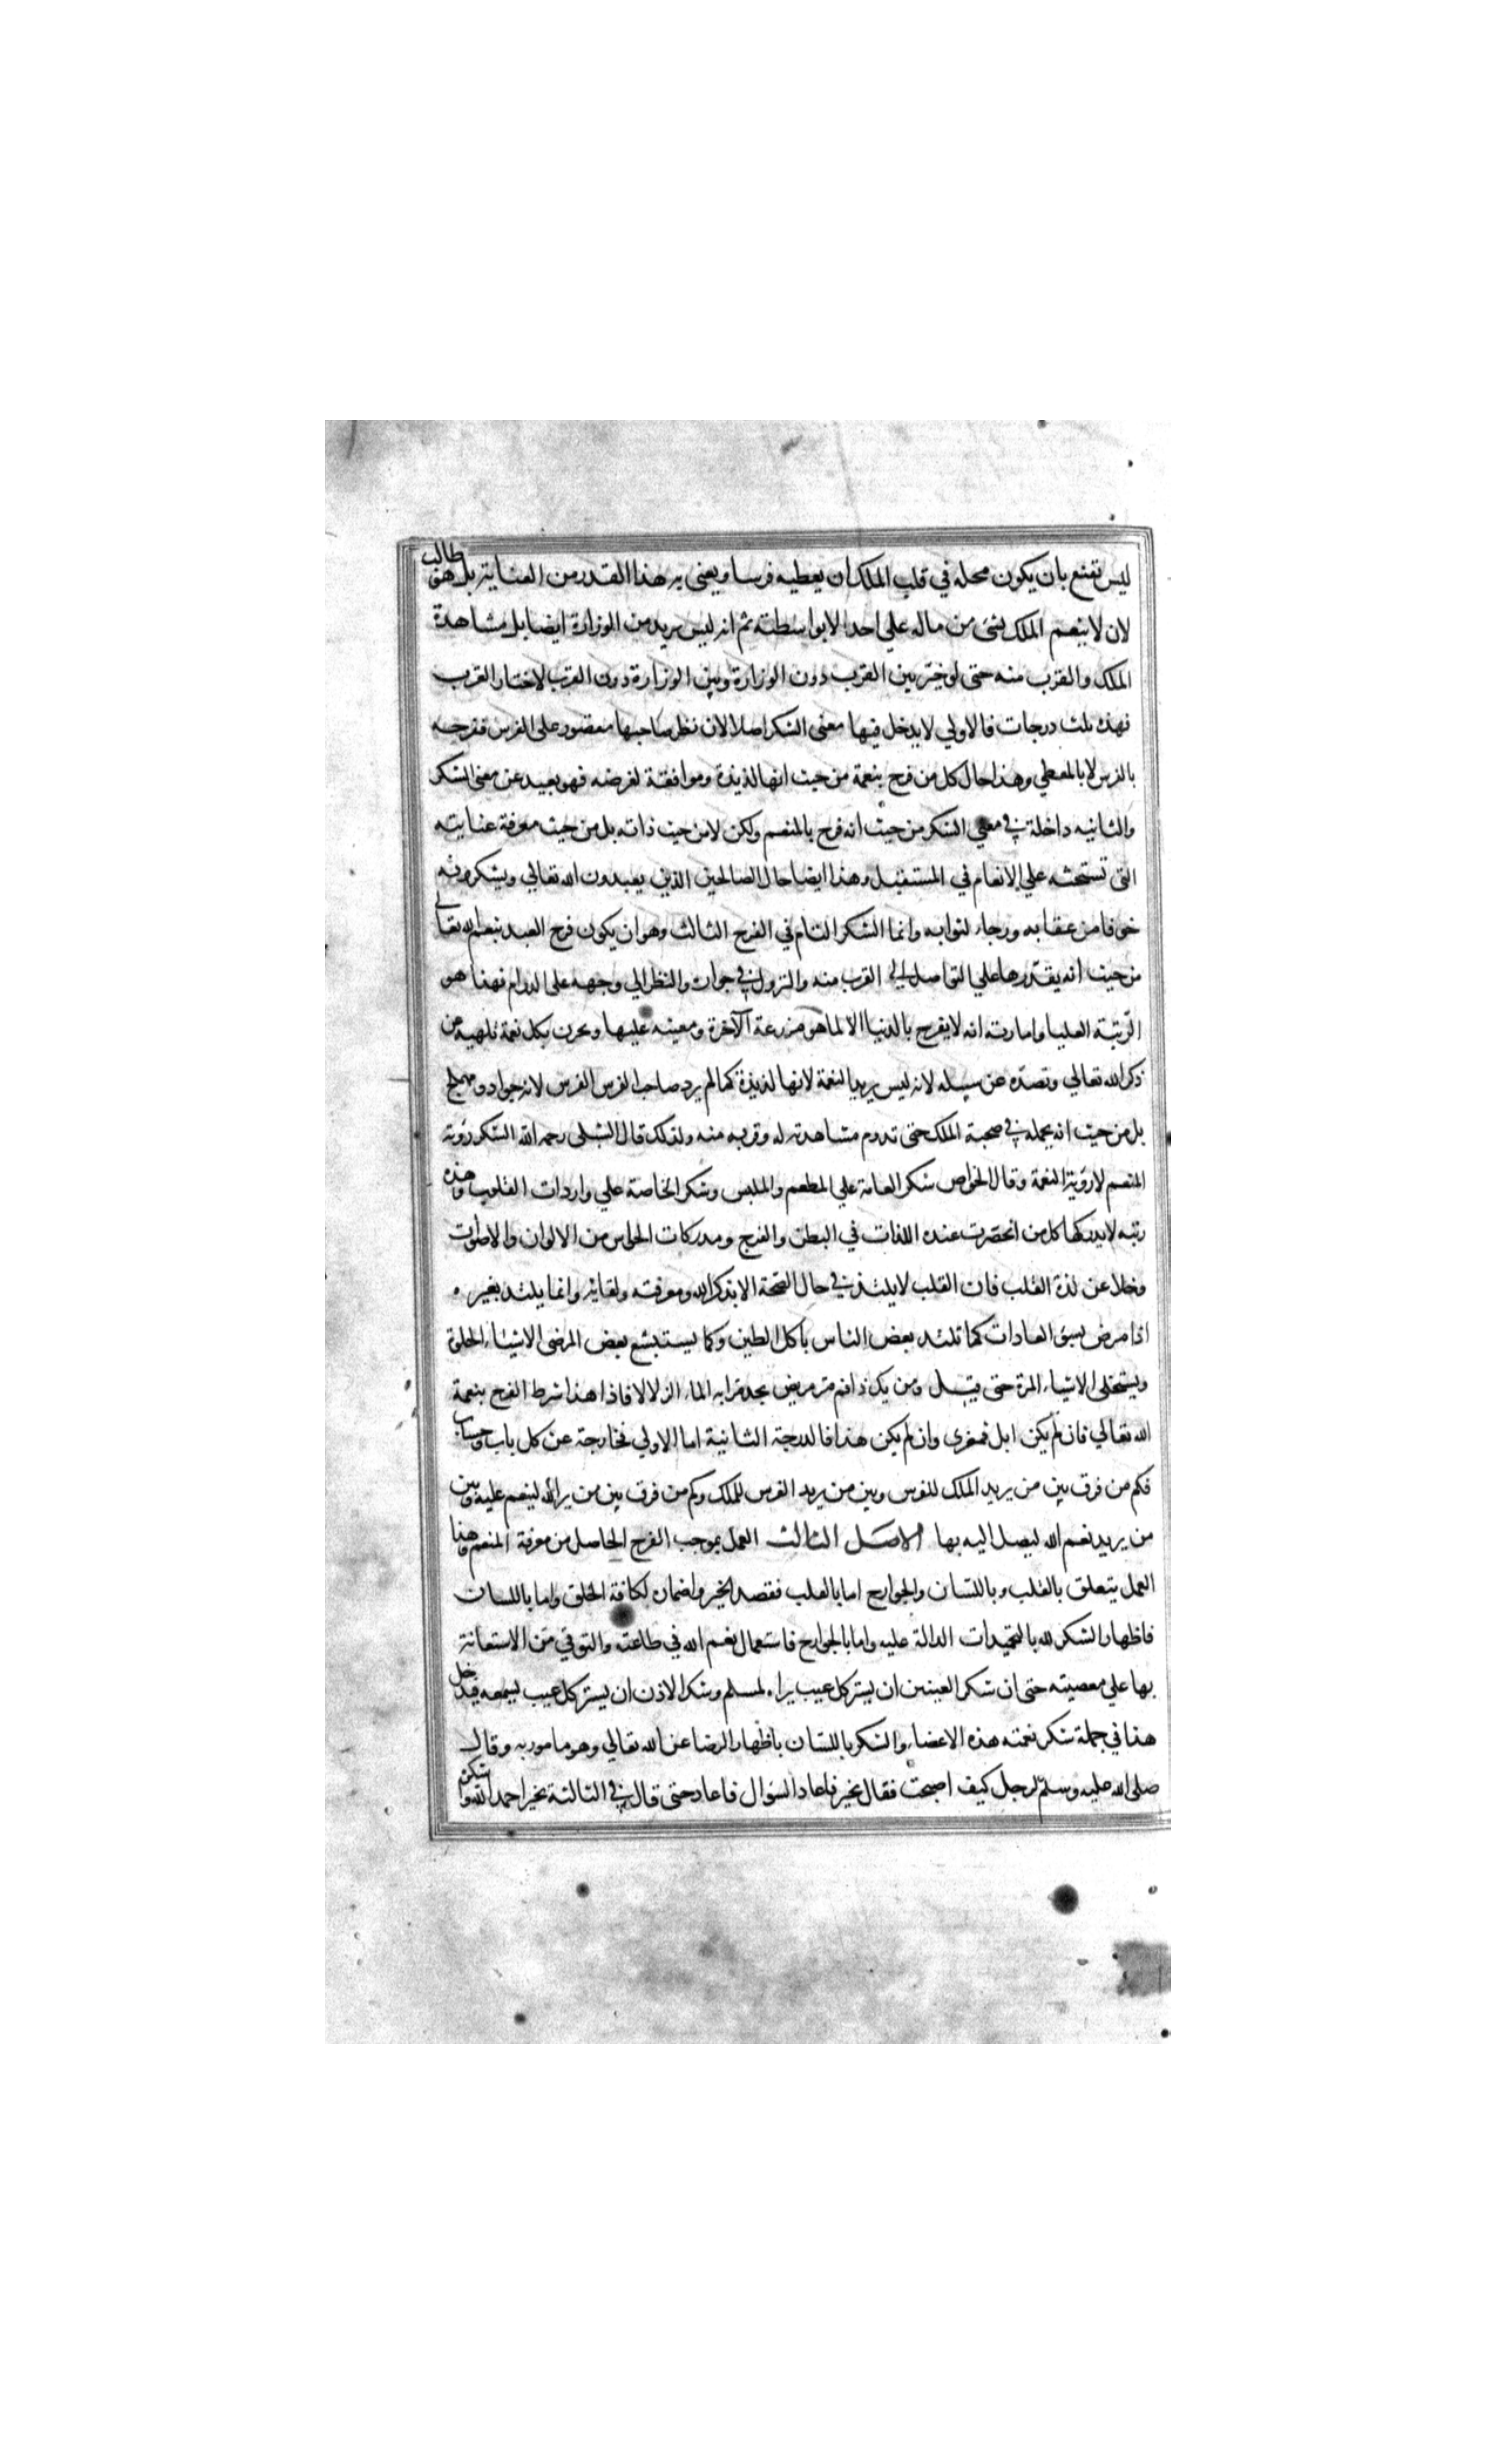 ليس تقنع بان يكون محله في قلب الملك ان يعطيه فرسا ويعنى به هذا القدر من العناية بل هو طالب
لان لا ينعم الملك بشئ من ماله على احد الا بواسطته ثم انه ليس يريد من الوزارة ايضا بل مشاهدة
الملك والقرب منه حتى لو خير بين القرب دون الوزارة وبين الوزارة دون القرب لاختار القرب
فهذه ثلث درجات فالاولي لا يدخل فيها معنى الشكر اصلا لان نظر صاحبها مقصور على الفرس ففرحه
بالفرس لا بالمعطي وهذا حال كل من فرح بنعمة من حيث انها لذيذة وموافقة لغرضه فهو بعيد عن معنى الشكر
والثانيه داخلة في معني الشكر من حيث انه فرح بالمنعم ولكن لا من حيث ذاته بل من حيث معرفة عنايته
التي تستحثه علي الانعام في المستقبل وهذا ايضا حال الصالحين الذين يعبدون الله تعالي ويشكرونه
خوفا من عقابه ورجاء لثوابه وانما الشكر التام في الفرح الثالث وهو ان يكون فرح العبد بنعم الله تعالي
من حيث انه يقدر بها علي التواصل الي القرب منه والنزول في جواره والنظر الي وجهه على الدوام فهذا هو
الرتبة العليا وامارته انه لا يفرح بالدنيا الا لما هو مزرعة الآخرة ومعينه عليها ويحزن بكل نعمة تلهيه عن
ذكر الله تعالي وتصده عن سبيله لانه ليس يريد النعمة لانها لذيذة كما لم يرد صاحب الفرس الفرس لانه جواد ومهملج
بل من حيث انه يحمله في صحبة الملك حتى تدوم مشاهدته له وقربه منه ولذلك قال الشبلي رحمه الله الشكر رؤية
المنعم لا رؤية النعمة وقال الخواص شكر العامة علي المطعم والملبس وشكر الخاصة علي واردات القلوب وهذه
رتبه لا يدركها كل من انحصرت عنده اللذات في البطن والفرج ومدركات الحواس من الالوان والاصوات
وخلا عن لذة القلب فان القلب لا يلتذ في حال الصحة الا بذكر الله ومعرفته ولقائه وانما يلتذ بغيره
اذا مرض بسوء العادات كما تلتذ بعض الناس باكل الطين وكما يستبشع بعض المرضى الاشياء الحلوة
ويستحلى الاشياء المرة حتى قيل ومن يك ذا فم مر مريض يجد مرا به الماء الزلالا فاذا هذا شرط الفرح بنعمة
الله تعالي فان لم يكن ابل فمعزى وان لم يكن هذا فالدرجة الثانية اما الاولي فخارجة عن كل باب وحساب
فكم من فرق بين من يريد الملك للفرس وبين من يريد الفرس للملك وكم من فرق بين من يرد الله لينعم عليه وبين
من يريد نعم الله ليصل اليه بها الاصل الثالث العمل بموجب الفرح الحاصل من معرفة المنعم وهذا
العمل يتعلق بالقلب وباللسان والجوارح اما بالقلب فقصد الخير واضماره لكافة الخلق واما باللسان
فاظهار الشكر لله بالتحميدات الدالة عليه واما بالجوارح فاستعمال نعم الله في طاعته والتوقي من الاستعانة
بها علي معصيته حتى ان شكر العينين ان يستر كل عيب يراه لمسلم وشكر الاذن ان يستر كل عيب يسمعه فيدخل
هذا في جملة شكر نعمته هذه الاعضاء والشكر باللسان باظهار الرضا عن الله تعالي وهو مامور به وقال
صلى الله عليه وسلم لرجل كيف اصبحت فقال بخير فاعاد السؤال فاعاد حتى قال في الثالثة بخير احمد الله واشكره